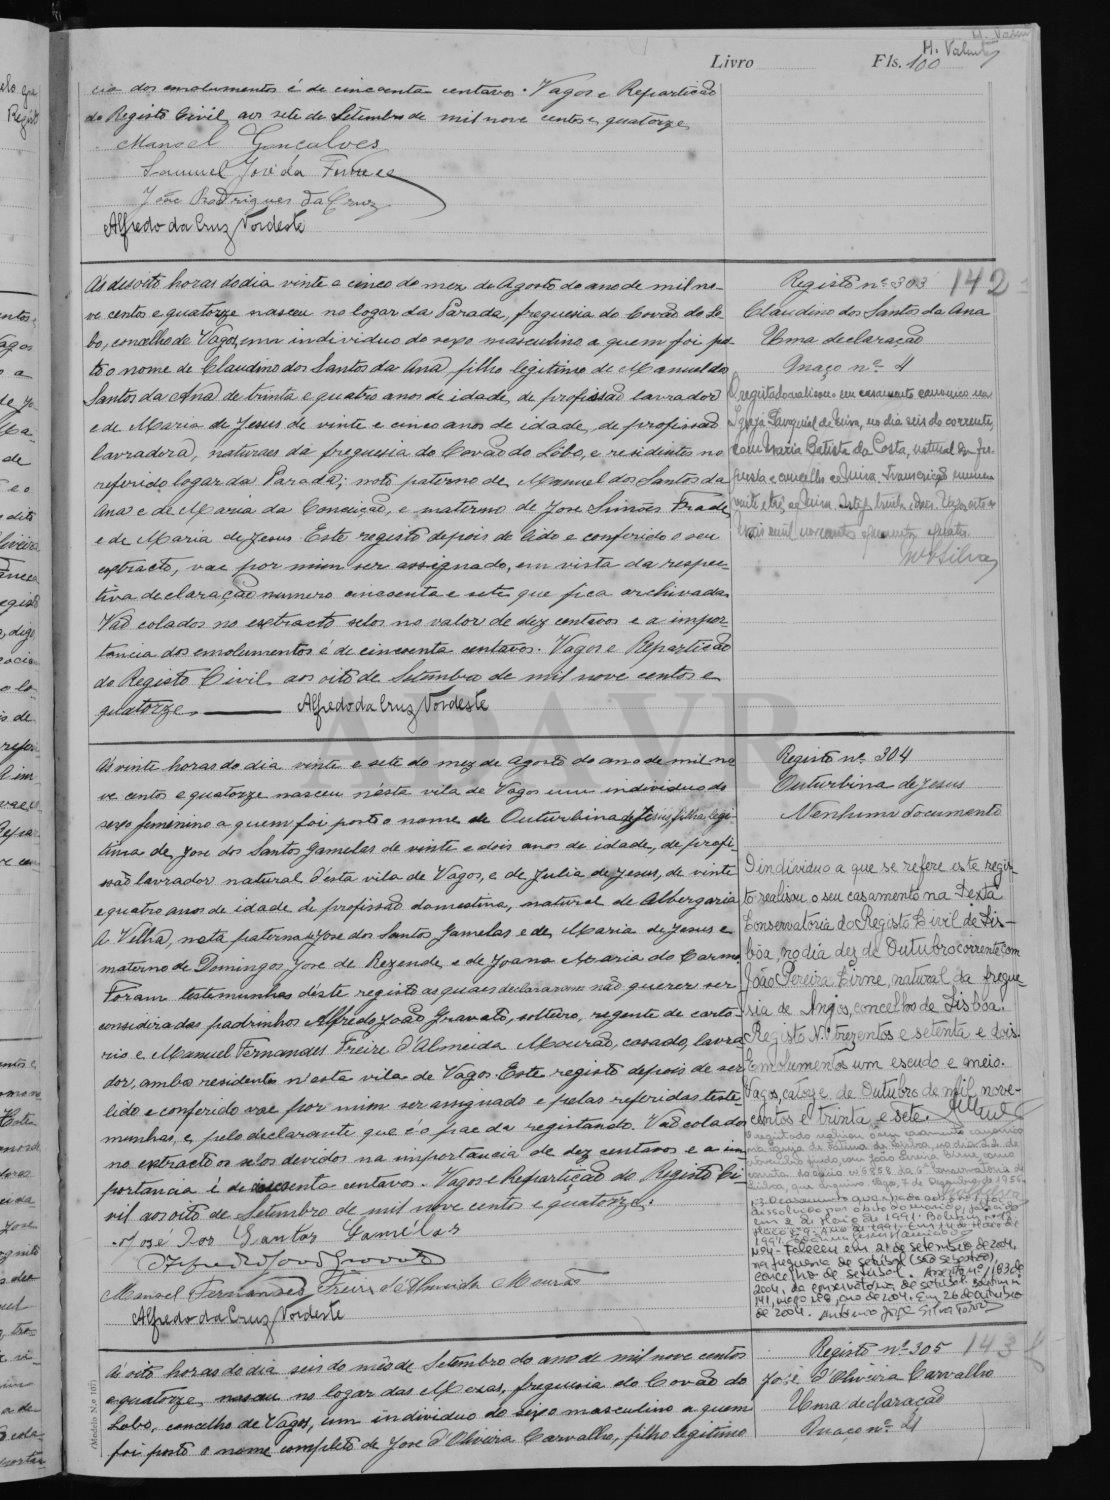 Livro Fls. 100
cia dos emolumentos é de cincoenta centavos. Vagos e Repartição
do Registo Civil, aos sete de Setembro de mil nove centos e quatorze
Manoel Gonçalves
Samuel José da Fonseca
João Rodrigues da Cruz
Alfredo da Cruz Nordeste
Ás desoito horas do dia vinte e cinco do mez de Agosto do ano de mil no-
ve centos e quatorze nasceu no logar da Parada, freguesia do Covão do Lo-
bo, concelho de Vagos, um individuo do sexo masculino a quem foi pos-
to o nome de Claudino dos Santos da Ana, filho legitimo de Manuel dos
Santos da Ana de trinta e quatro anos de idade, de profissão lavrador
e de Maria de Jesus de vinte e cinco anos de idade, de profissão
lavradora, naturaes da freguesia do Covão do Lobo, e residentes no
referido logar da Parada; neto paterno de Manuel dos Santos da
Ana e de Maria da Conceição, e materno de Jose Simões Frade
e de Maria de Jesus Este registo depois de lido e conferido o seu
extracto, vae por mim ser assignado, em vista da respec-
tiva declaração numero cincoenta e sete que fica archivada.
Vão colados no extracto selos no valor de dez centavos e a impor-
tancia dos emolumentos é de cincoenta centavos. Vagos e Repartição
do Registo Civil, aos oito de Setembro de mil nove centos e
quatorze. Alfredo da Cruz Nordeste
Registo nº 303 142
Claudino dos Santos da Ana
Uma declaração
Maço nº 4
O registado realisou o seu casamento canonico na
Igreja Paroquial de Mira, no dia seis do corrente,
com Maria Batista da Costa, natural da fre-
guesia e concelho de Mira. Transcrição numero
vinte e três, de Mira.
Silva
ADAVR
Ás vinte horas do dia vinte e sete do mez de Agosto do ano de mil no
ve centos e quatorze nasceu n'esta vila de Vagos um individuo do
sexo feminino a quem foi posto o nome de Outurbina de Jesus, filha legi-
tima de Jose dos Santos Gamelas de vinte e dois anos de idade, de profi-
ssão lavrador natural d'esta vila de Vagos, e de Julia de Jesus, de vinte
e quatro anos de idade de profissão domestica, natural de Albergaria
A Velha, neta paterna de Jose dos Santos Gamelas e de Maria de Jesus e
materno de Domingos Jose de Rezende e de Joana Maria do Carmo
Foram testemunhas d'este registo as quaes declararam não querer ser
consideradas padrinhos Alfredo João Gravato, solteiro, regente de carto-
rio e Manuel Fernandes Freire d'Almeida Mourão, casado, lavra
dor, ambos residentes n'esta vila de Vagos. Este registo depois de ser
lido e conferido vae por mim ser assignado e pelas referidas teste-
munhas, e pelo declarante que é o pae da registando. Vão colados
no extracto os selos devidos na importancia de dez centavos e a im-
portancia é de cincoenta centavos. Vagos e Repartição do Registo Ci-
vil aos oito de Setembro de mil nove centos e quatorze.
José Dos Santos Gamélas
Alfredo João Gravato
Manoel Fernandes Freire d'Almeida Mourão
Alfredo da Cruz Nordeste
Registo nº 304
Outurbina de Jesus
Nenhum documento
O individuo a que se refere este regis-
to realisou o seu casamento na Sexta
Conservatória do Registo Civil de Lis-
bôa, no dia dez de Outubro corrente com
João Pereira Lirne, natural da fregue-
sia de Anjos, concelho de Lisbôa.
Registo Nº trezentos e setenta e dois.
Emolumentos um escudo e meio.
Vagos, catorze de Outubro de mil nove-
centos e trinta e sete.
dissolvido por obito do marido, falecido
em 2 de Maio de 1991.
Nº 4 - Faleceu em 21 de setembro de 2004,
na freguesia de Setúbal (São Sebastião),
concelho de Setúbal. Assento nº 1183 de
2004, da conservatória de Setúbal. Boletim nº
141, maço nº 8, ano de 2004. Em 26 de outubro
de 2004. António Jorge Silva
Ás oito horas do dia seis do mês de Setembro do ano de mil nove centos
e quatorze, nasceu no logar das Mesas, freguesia do Covão do
Lobo, concelho de Vagos, um individuo do sexo masculino a quem
foi posto o nome completo de Jose d'Oliveira Carvalho, filho legitimo
Registo nº 305 143
José d'Oliveira Carvalho
Uma declaração
Maço nº 4
(Modelo N.º 107)